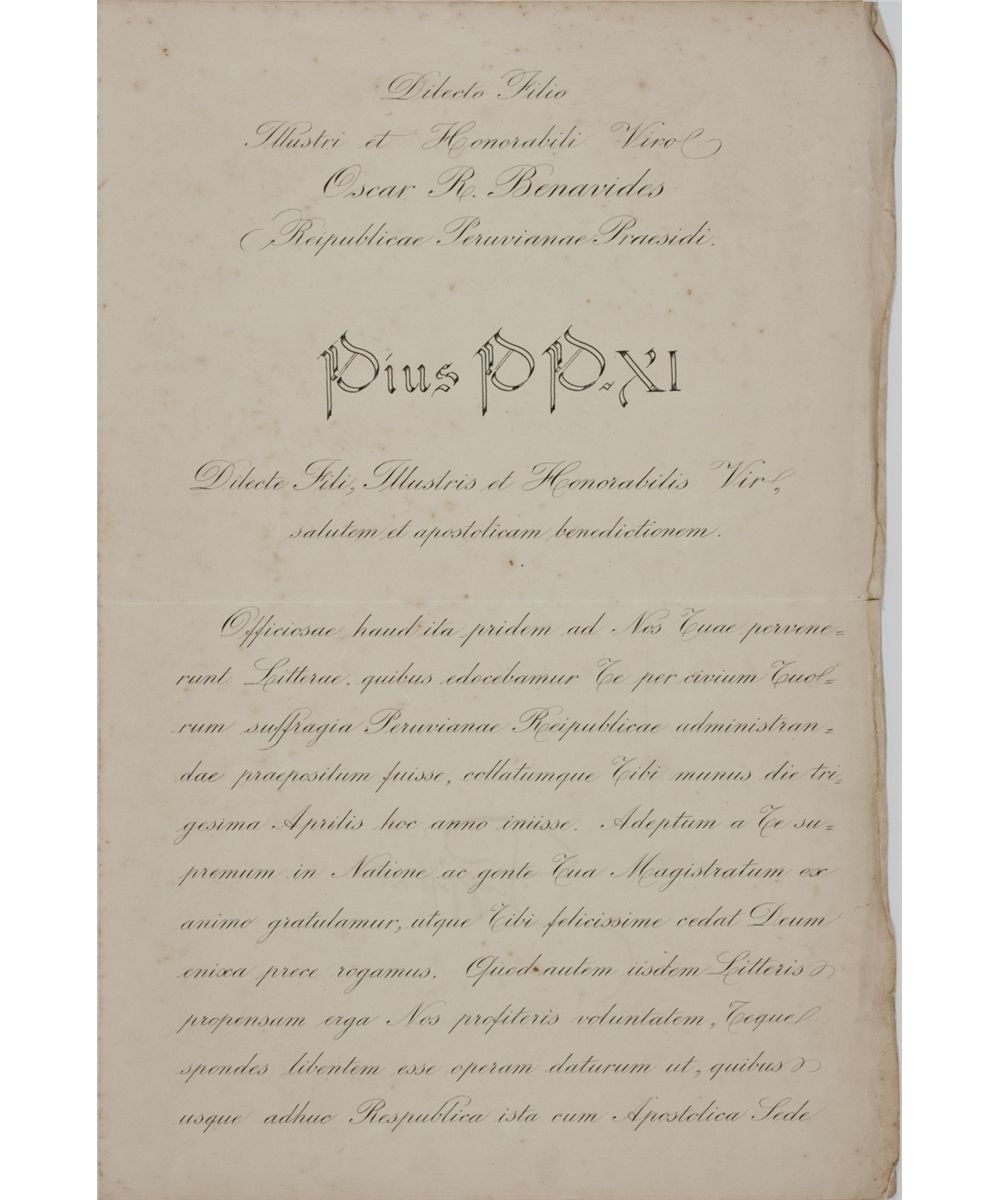 Dilecto Filio
Illustri et Honorabili Viro
Oscar R. Benavides
Reipublicae Peruvianae Praesidi.
Pius PP. XI
Dilecte Fili, Illustris et Honorabilis Vir,
salutem et apostolicam benedictionem.
Officiosae haud ita pridem ad Nos Tuae pervene=
runt Litterae, quibus edocebamur Te per civium Tuo=
rum suffragia Peruvianae Reipublicae administran=
dae praepositum fuisse, collatumque Tibi munus die tri=
gesima Aprilis hoc anno iniisse. Adeptum a Te su=
premum in Natione ac gente Tua Magistratum ex
animo gratulamur, utque Tibi felicissime cedat Deum
enixa prece rogamus. Quod autem iisdem Litteris
propensam erga Nos profiteris voluntatem, Teque
spondes libentem esse operam daturum ut, quibus
usque adhuc Respublica ista cum Apostolica Sede